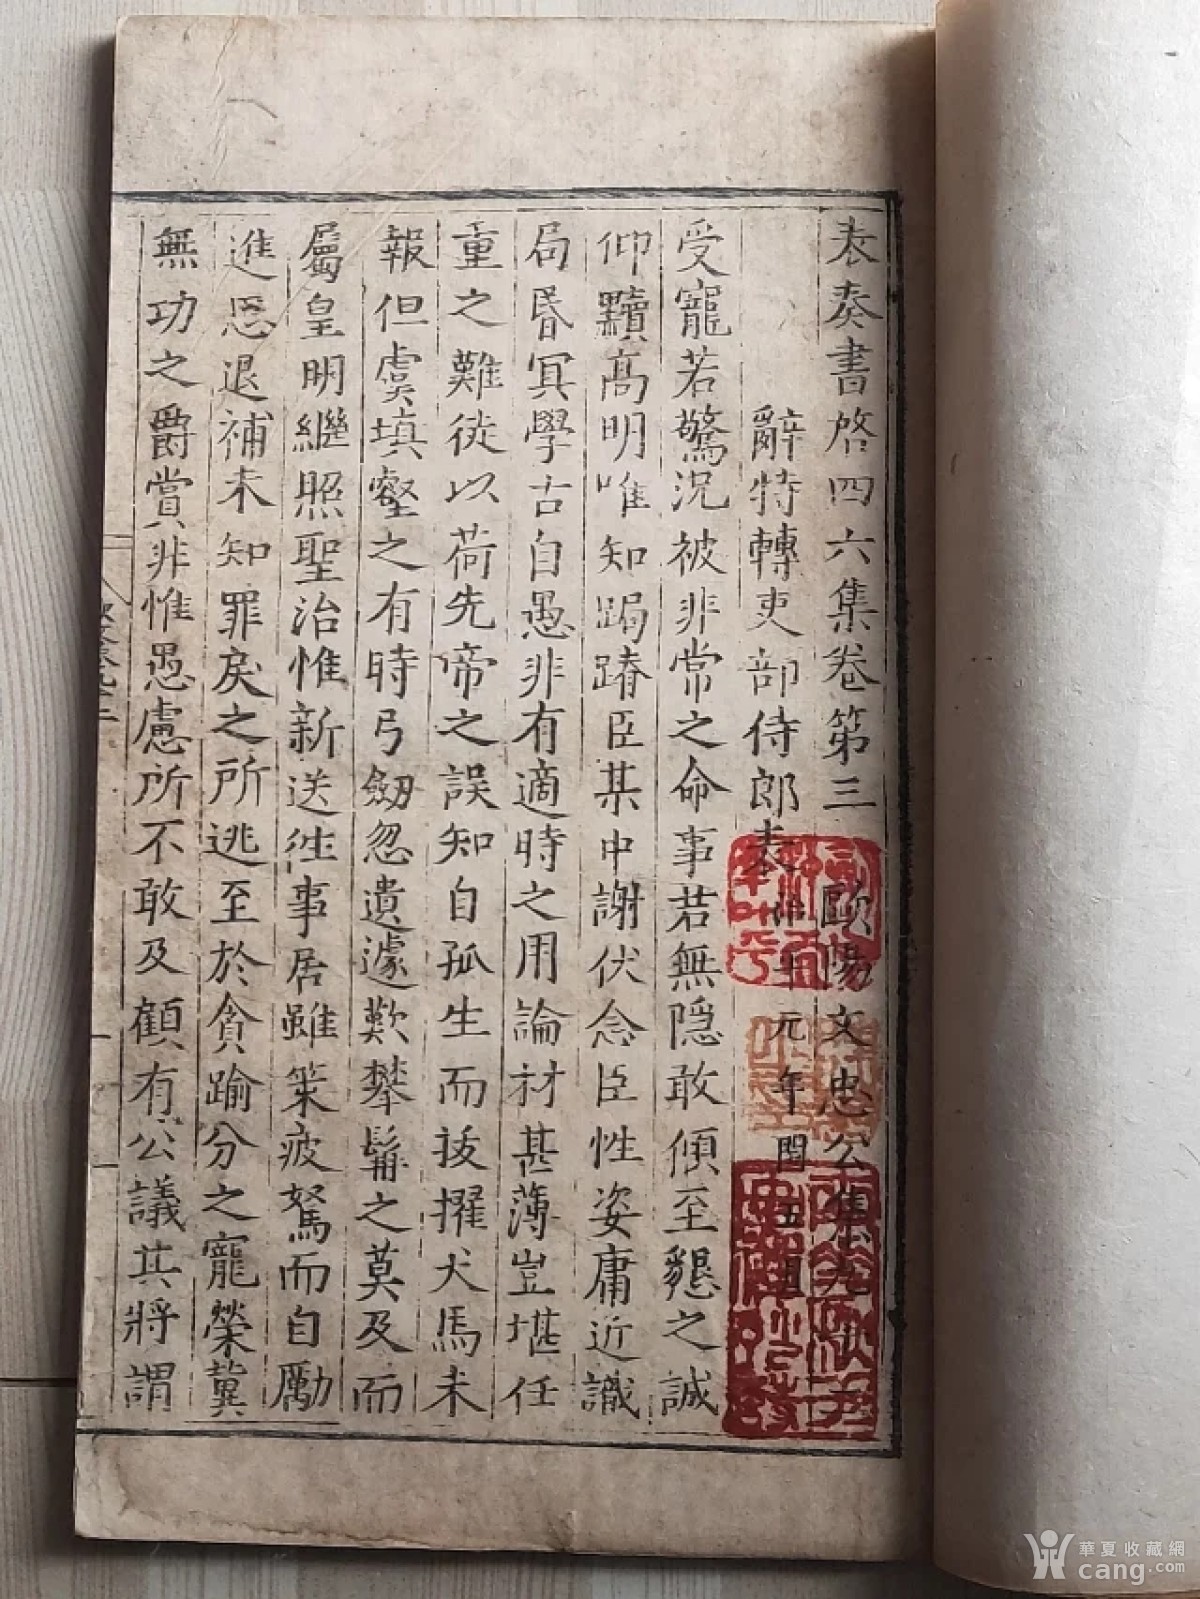 表奏書啓四六集卷第三 歐陽文忠公集九十二
辭特轉吏部侍郎表 治平元年閏五月
受寵若驚況被非常之命事若無隱敢傾至懇之誠
仰黷高明唯知跼蹐臣某中謝伏念臣性姿庸近識
局昏冥學古自愚非有適時之用論材甚薄豈堪任
重之難徒以荷先帝之誤知自孤生而拔擢犬馬未
報但虞填壑之有時弓劒忽遺遽歎攀髯之莫及而
屬皇明繼照聖治惟新送往事居雖策疲駑而自勵
進思退補未知罪戾之所逃至於貪踰分之寵榮冀
無功之爵賞非惟愚慮所不敢及顧有公議其將謂
華夏收藏網
cang.com